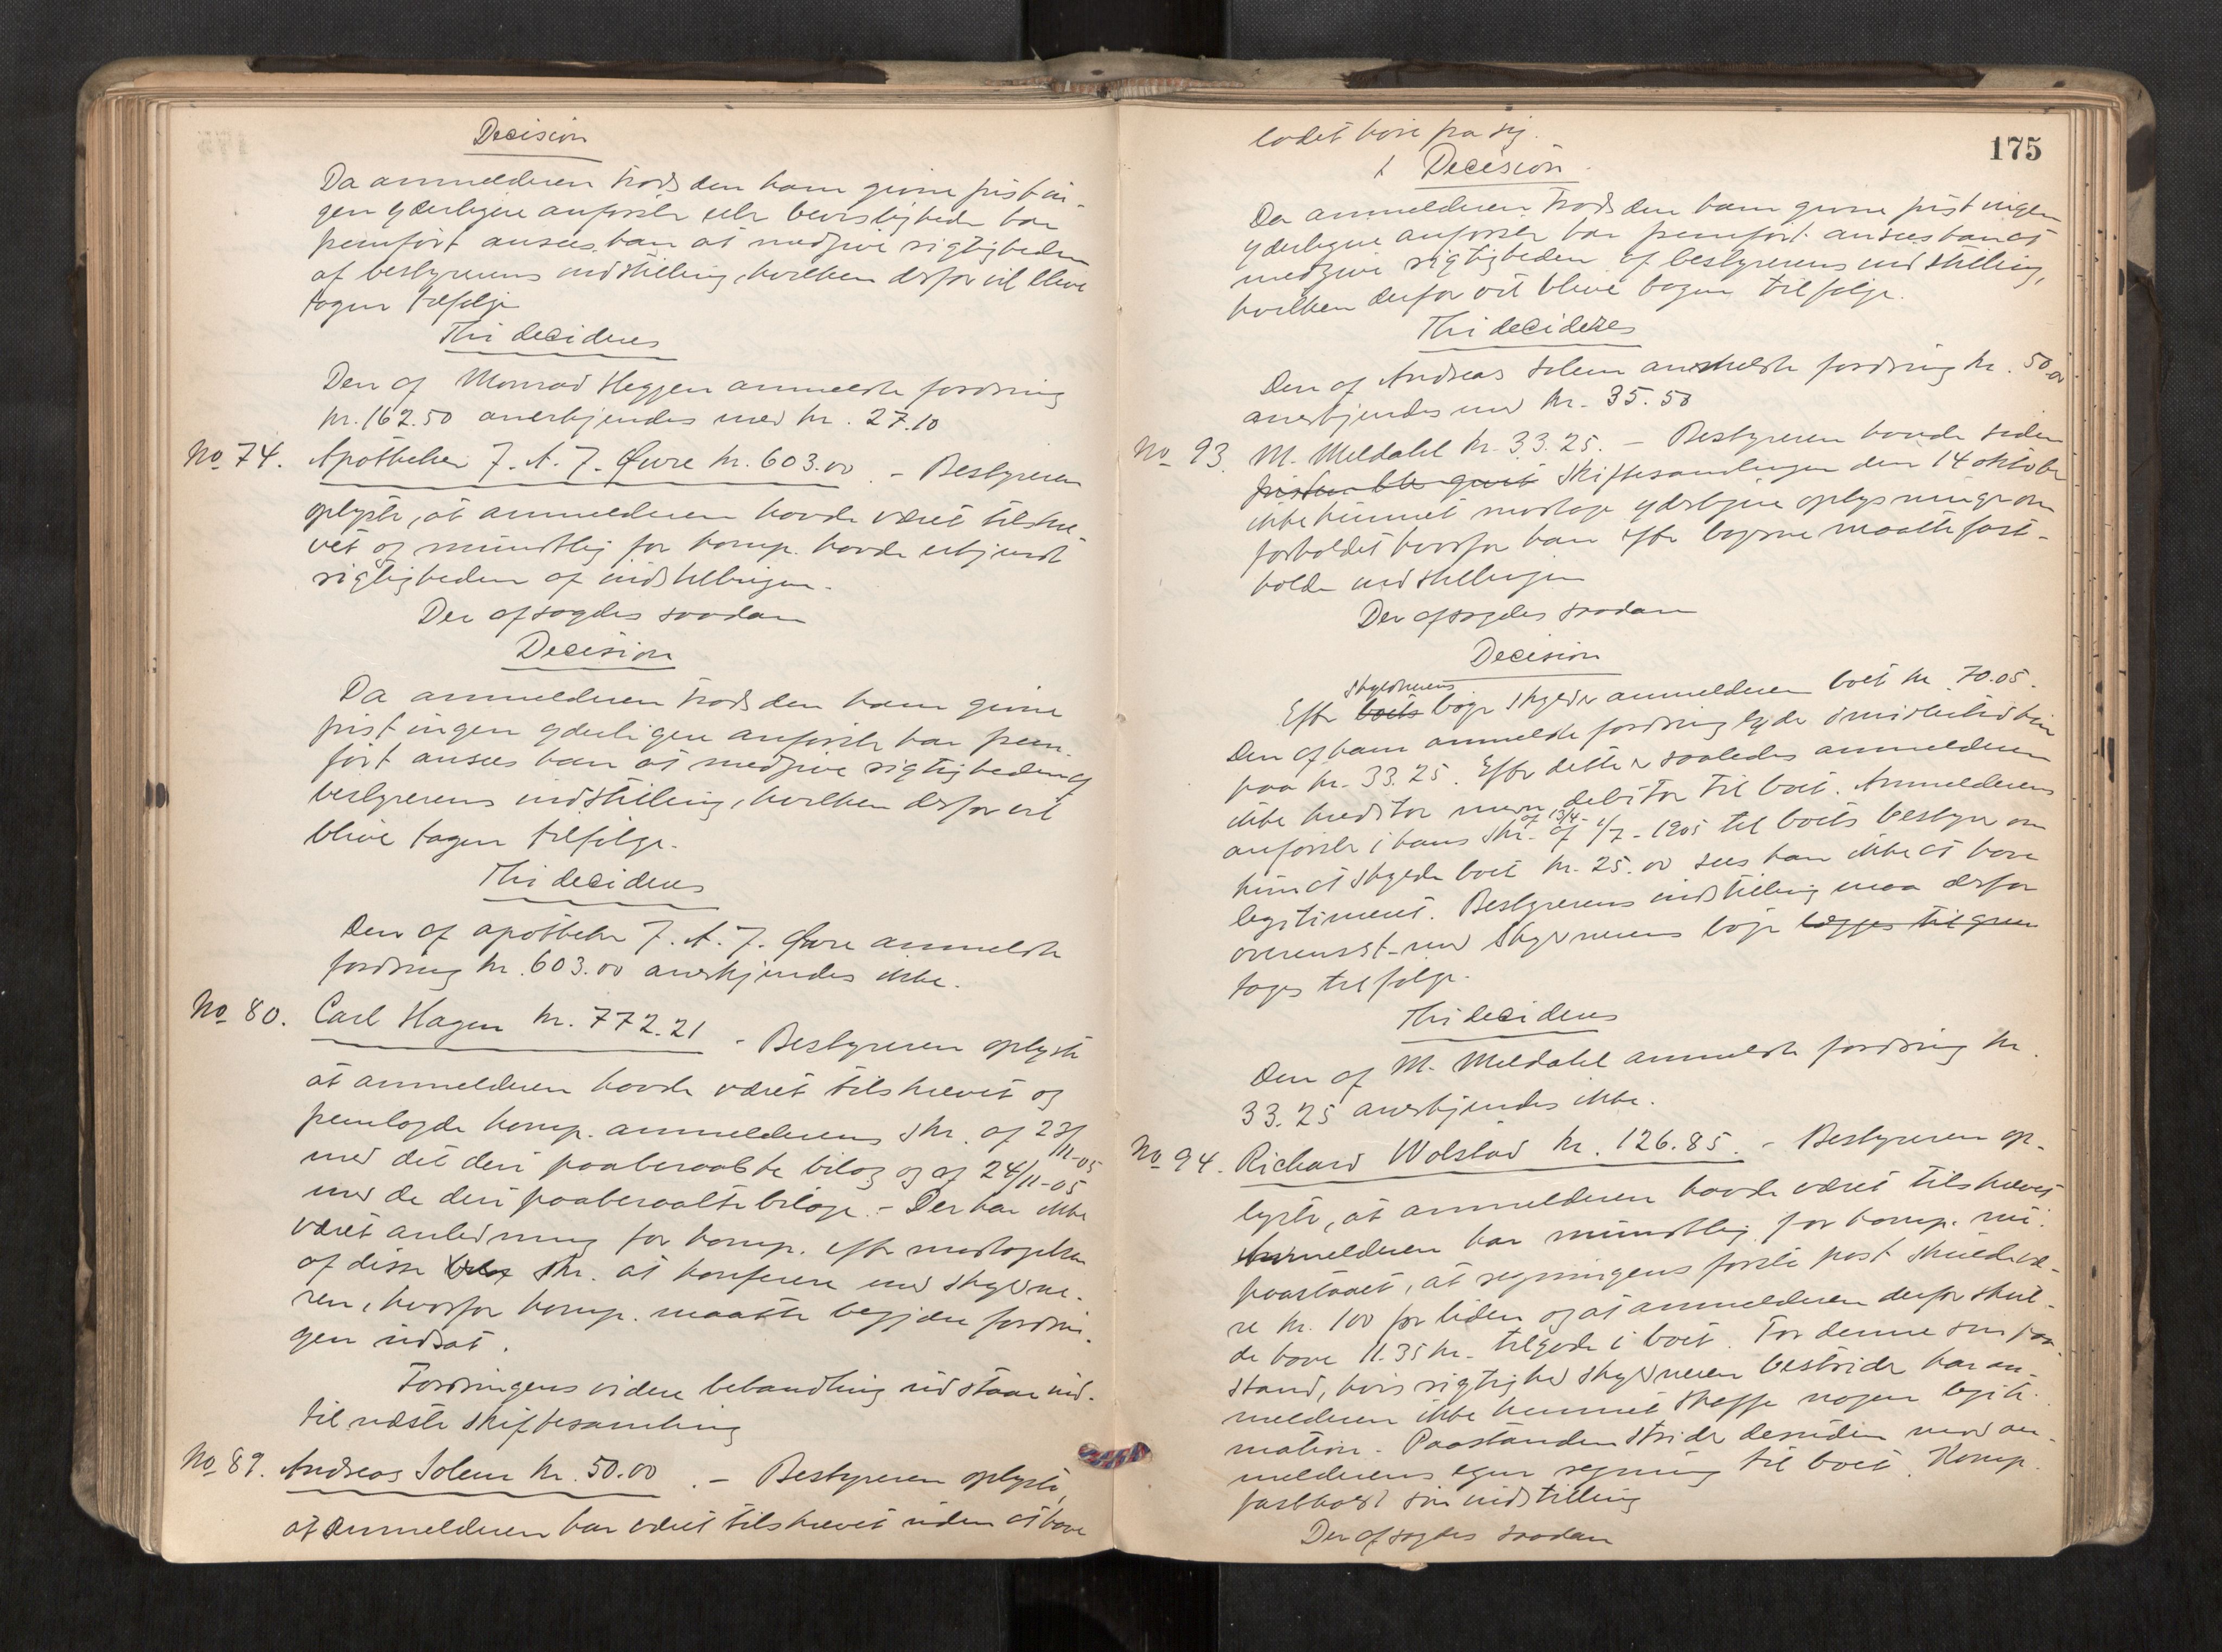 Decision
Da anmelderen trods den ham givne frist in-
gen yderligere anførsler eller bevisligheder har
fremført ansees han at medgive rigtigheden
af bestyrerens indstilling, hvilken derfor vil blive
tagen tilfølge
Thi decideres
Den af Monrad Heggen anmeldte fordring
kr. 162.50 anerkjendes med kr. 27.10
No 74. Apotheker J. A. J. Qvre kr. 603.00. – Bestyreren
oplyste, at anmelderen havde været tilskre-
vet og mundtlig for komp. havde erkjendt
rigtigheden af indstillingen.
Der afsagdes saadan
Decision
Da anmelderen trods den ham givne
frist ingen yderligere anførsler har frem-
ført ansees han at medgive rigtigheden af
bestyrerens indstilling, hvilken derfor vil
blive tagen tilfølge.
Thi decideres
Den af apotheker J. A. J. Qvre anmeldte
fordring kr. 603.00 anerkjendes ikke.
No 80. Carl Hagen kr. 772.21 - Bestyreren oplyste
at anmelderen havde været tilskrevet og
fremlagde komp. anmelderens skr. af 23/11-05
med det deri paaberaabte bilag og af 24/11-05
med de deri paaberaabte bilage. - Der har ikke
været anledning for komp. efter modtagelsen
af disse skr. at konferere med skyldne-
ren, hvorfor komp. maatte begjære fordrin-
gen udsat.
Fordringens videre behandling udstaar ind-
til næste skiftesamling
No 89. Andreas Solem kr. 50.00. – Bestyreren oplyste,
at anmelderen har været tilskrevet uden at have
175
ladet høre fra sig.
Decision
Da anmelderen trods den ham givne frist ingen
yderligere anførsler har fremført ansees han at
medgive rigtigheden af bestyrerens indstilling,
hvilken derfor vil blive tagen tilfølge.
Thi decideres
Den af Andreas Solem anmeldte fordring kr. 50.00
anerkjendes med kr. 35.50
No 93. M. Meldahl kr. 33.25. – Bestyreren havde siden
fristen blev givet skiftesamlingen den 14 oktober
ikke kunnet modtage yderligere oplysninger om
forholdet hvorfor han efter bøgerne maatte fast-
holde indstillingen
Der afsagdes saadan
Decision
skyldnerens
Efter boets bøger skylder anmelderen boet kr. 70.05.
Den af ham anmeldte fordring lyder imidlertid kun
paa kr. 33.25. Efter dette er saaledes anmelderen
ikke kreditor men debitor til boet. Anmelderens
af 13/4
anførsler i hans skr. af 1/7-1905 til boets bestyrer om
kun at skylde boet kr. 25.00 sees han ikke at have
legitimeret. Bestyrerens indstilling maa derfor
overensst. med skyldnerens bøger lægges til grun
tages tilfølge.
Thi decideres
Den af M. Meldahl anmeldte fordring kr.
33.25 anerkjendes ikke.
No 94. Richard Wolstad kr. 126.85. - Bestyreren op-
lyste, at anmelderen havde været tilskrevet
Anmelderen har mundtlig for komp. nu
paastaaet, at regningens første post skulde væ-
re kr. 100 for liden og at anmelderen derfor skul-
de have 11.35 kr. tilgode i boet. For denne sin paa-
stand, hvis rigtighed skyldneren bestrider har an-
melderen ikke kunnet skaffe nogen legiti-
mation. Paastanden strider desuden mod an-
melderens egen regning til boet. Komp.
fastholdt sin indstilling
Der afsagdes saadan